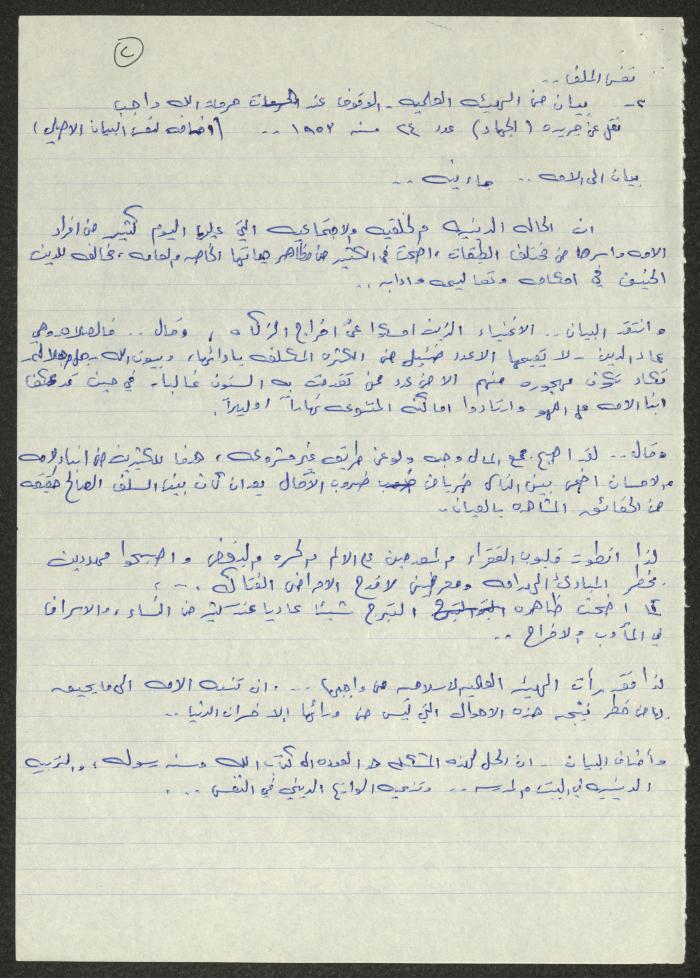 (٢)
نفس الملف ..
٢- بيان من الهيئة العلمية - الوقوف عند حرمات الله واجب
نقل عن جريدة (الجهاد) عدد ٢٤ سنة ١٩٥٣ .. (وضافه لنفس البيان الاصلي)
بيان الى الامه .. جاء فيه ..
ان الحاله الدينيه والخلقيه والاجتماعيه التي عليها اليوم كثير من افراد
الامه واسرها من مختلف الطبقات، اضحت في الكثير من مظاهر حياتها الخاصه والعامه، مخالفه للدين
الحنيف في احكامه وتعاليمه وادابه ..
وانتقد البيان .. الاغنياء الذين امسكوا عن اخراج الزكاه، وقال .. فالصلاه وهي
عماد الدين - لا يقيمها الا عدد ضئيل من الكثره المكلفه بادائها، وبيوت الله
تكاد تكون مهجوره منهم الا من عدد ممن تقدمت به السنون غالباً - في حين قد عكف
ابناء الامه على اللهو وارتادوا اماكنه المتنوعه نهاراً وليلاً.
وقال .. لقد اصبح جمع المال وجه ولو عن طرائق غير مشروعه، هدفا للكثيرين من ابناء الامه
والاحسان اضحى بين الناس ضربا من ضروب الآمال بعد ان كان بين السلف الصالح حقيقه
من الحقائق المشاهده بالعيان ..
لذا انطوت قلوب الفقراء والمعوزين على الالم والحسره والبغض واصبحوا مهددين
بخطر المبادئ الهدامه ومعرضين لافدح الامراض الفتاكه ..،
كما اضحت ظاهره التبرج شيئا عاديا عند كثير من النساء، والاسراف
في المآدب والافراح ..
لذا فقد رأت الهيئه العلميه الاسلاميه من واجبها ... ان تنبه الامه الى ما يحيق
بها من خطر نتيجه هذه الاحوال التي ليس من ورائها إلا خسران الدنيا ..
وأضاف البيان - ان الحل لهذه المشكله هو العوده الى كتاب الله وسنه رسوله، والتربيه
الدينيه في البيت والمدرسه .. وتنميه الوازع الديني في النفس ...